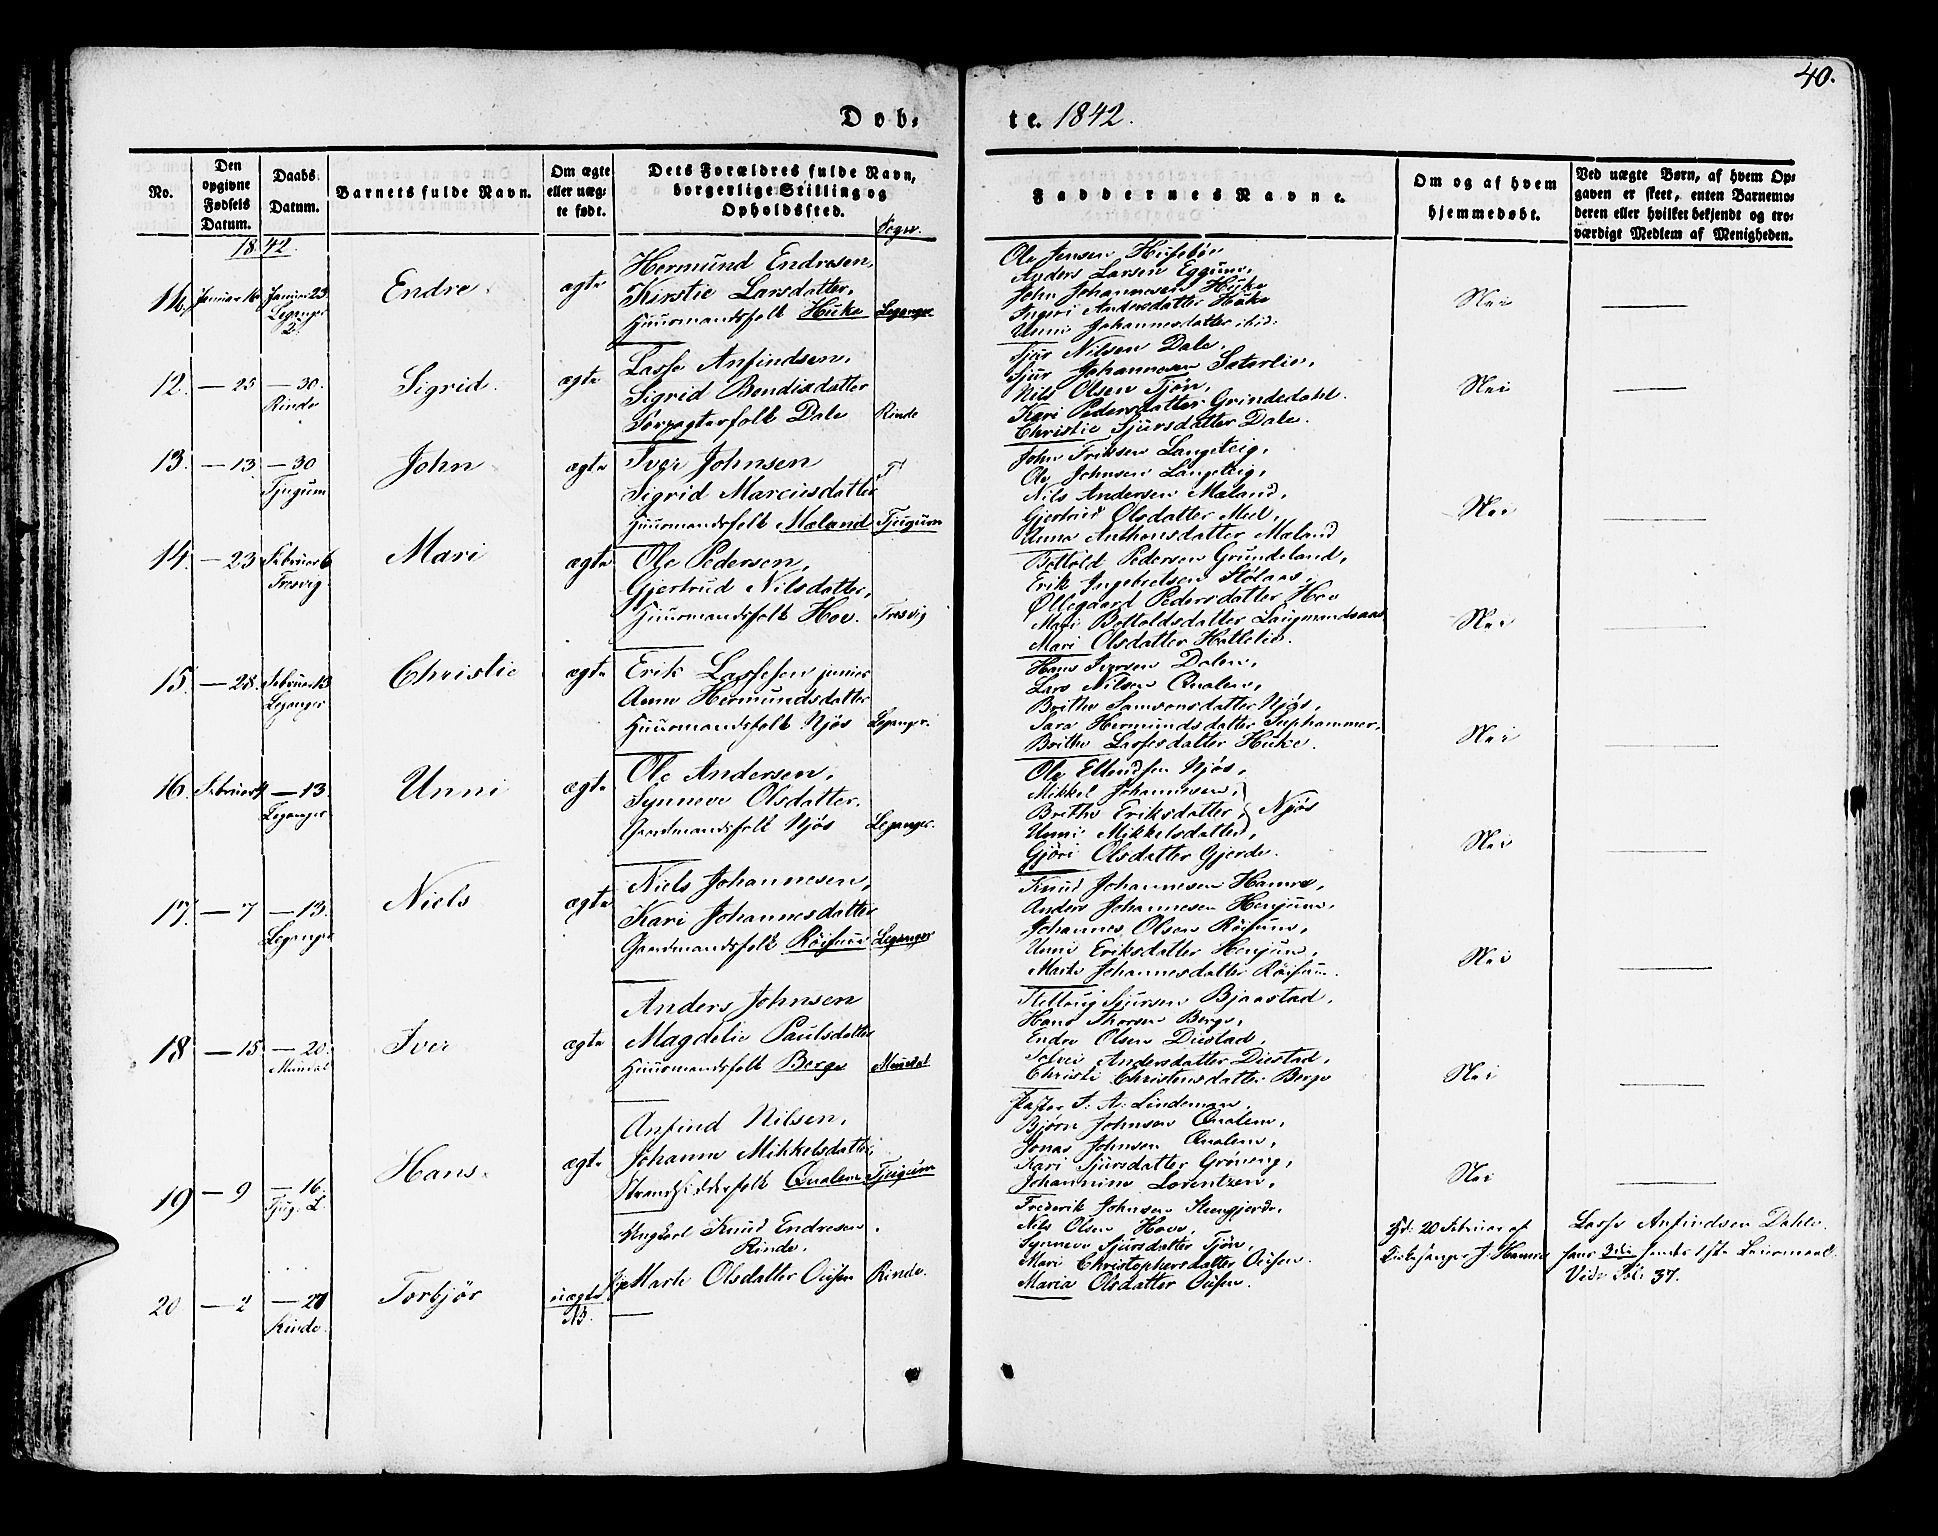 40.
Døb-
te. 1842.
No.
Den opgivne Fødsels Datum.
Daabs Datum.
Barnets fulde Navn.
Om ægte eller uægte født.
Dets Forældres fulde Navn, borgerlige Stilling og Opholdssted.
Sogn.
Faddernes Navne.
Om og af hvem hjemmedøbt.
Ved uægte Børn, af hvem Opgaven er skeet, enten Barnemoderen eller hvilket bekjendt og troværdigt Medlem af Menigheden.
1842.
11. Januar 16 Januar 23. Leganger
Endre
ægte
Hermund Endresen,
Kirstie Larsdatter,
Huusmandsfolk Huke Leganger
Ole Jensen Husebø,
Anders Larsen Eggum,
John Johannesen Huke
Ingeri Andersdatter Huke
Unni Johannesdatter ibid:
Nei
12. — 25 — 30. Rinde
Sigrid.
ægte
Lasse Anfindsen,
Sigrid Bendixdatter
Forpagterfolk Dale Rinde
Sjur Nilsen Dale,
Sjur Johannesen Saterlie,
Nils Olsen Tjøn,
Kari Pedersdatter Grindedahl.
Christie Sjursdatter Dale.
Nei
13. — 13 — 30 Tjugum
John
ægte
Iver Johnsen
Sigrid Marcusdatter
Huusmandsfolk Mæland Tjugum
John Eriksen Langeteig,
Ole Johnsen Langeteig,
Nils Andersen Mæland,
Gjertrud Olsdatter Meel,
Anna Anthonsdatter Mæland
Nei
14. — 23 Februar 6 Fresvig
Mari
ægte
Ole Pedersen,
Gjertrud Nilsdatter,
Huusmandsfolk Hov. Fresvig
Bottold Pedersen Grundeland,
Erik Ingebretsen Stølaas,
Øllegaard Pedersdatter Hov
Mari Bottoldsdatter Langmandsaas
Mari Olsdatter Hattelie.
Nei
15. — 28. Februar 13 Leganger
Christie
ægte
Erik Lassesen junior
Anne Hermundsdatter
Huusmandsfolk Njøs Leganger.
Hans Iversen Dalen,
Lars Nilsen Qualem,
Brithe Samsonsdatter Njøs,
Sara Hermundsdatter Suphammer,
Brithe Lassesdatter Huke.
Nei
16. Februar 4 — 13. Leganger
Unni
ægte
Ole Andersen,
Synneve Olsdatter.
Gaardmandsfolk Njøs Leganger.
Ole Ellendsen Njøs,
Mikkel Johannesen,
Brithe Eriksdatter, Njøs
Unni Mikkelsdatter,
Gjøri Olsdatter Gjerde.
Nei
17. — 7 — 13. Leganger
Niels
ægte
Niels Johannesen,
Kari Johannesdatter
Gaardmandsfolk Røisum Leganger
Knud Johannesen Hamre,
Anders Johannesen Henjum,
Johannes Olsen Røisum,
Unni Eriksdatter Henjum,
Marte Johannesdatter Røisum.
Nei
18 — 15 — 20. Mundal
Iver
ægte
Anders Johnsen
Magdelie Paulsdatter
Huusmandsfolk Berge Mundal
Stellaug Sjursen Bjaastad,
Hans Thorsen Berge,
Endre Olsen Distad,
Solvei Andersdatter Distad,
Christi Christensdatter Berge
Nei
19 — 9 — 16. Tjug. L.
Hans.
ægte
Anfind Nilsen,
Johanne Mikkelsdatter,
Strandsidderfolk Qualem Tjugum
Pastor T: A: Lindeman
Bjørn Johnsen Qualem,
Jonas Johnsen Qualem,
Kari Sjursdatter Grøneng,
Johannine Lorentzen,
Nei
20 — 2 — 27 Rinde.
Torbjør
uægte NB.
Ungkarl Knud Endresen
Rinde.
Pige Marte Olsdatter Ousen Rinde.
Frederik Johnsen Steengjerde,
Nils Olsen Hove,
Synneve Sjursdatter Tjøn,
Mari Christophersdatter Ousen.
Maria Olsdatter Ousen.
Hd: 20 Februar af
Kirkesanger J. Hamre
Lasse Anfindsen Dahle.
hans 3die hendes 1ste Leiermaal.
Vide Pol: 37.